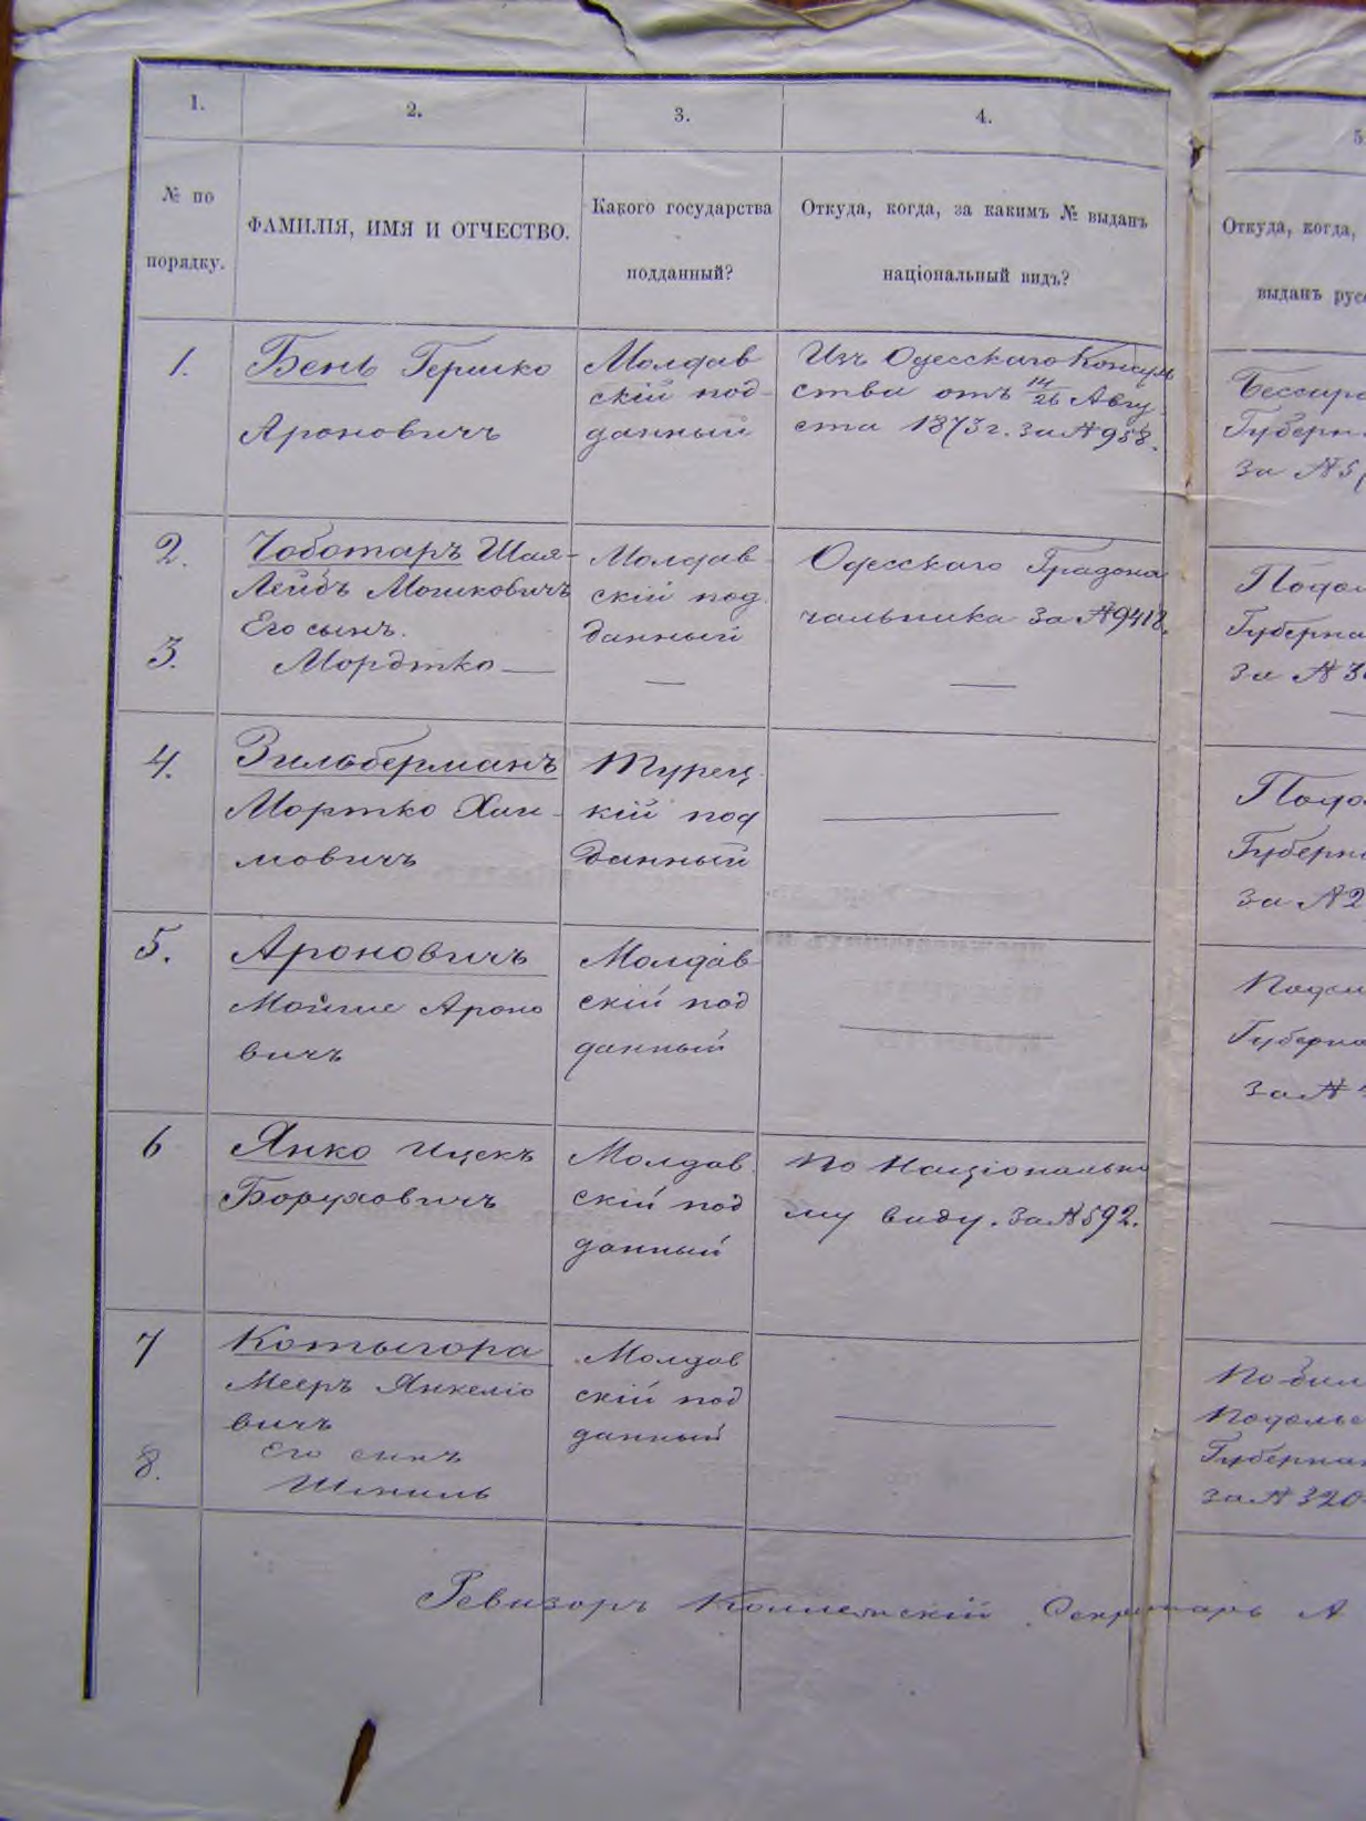 1.
2.
3.
4.
5
№ по
порядку.
ФАМИЛІЯ, ИМЯ И ОТЧЕСТВО.
Какого государства
подданный?
Откуда, когда, за какимъ № выданъ
національный видъ?
Откуда, когда,
выданъ русс
1.
Бень Гершко
Ароновичъ
Молдав
скій под-
данный
Изъ Одесскаго Консуль
ства отъ 14/26 Авгу-
ста 1873 г. за № 958.
Бессара
Губерн
за № 5
2.
Чоботаръ Шая-
Лейбъ Мошковичъ
Молдав-
скій под
данный
Одесскаго Градона
чальника за № 9418.
Подол
Губерна
за № 3
3.
Его сынъ.
Мордтко —
—
—
—
4.
Зильберманъ
Мортко Хаи-
мовичъ
Турец-
кій под
данный
—
Подо
Губерн
за № 2
5.
Ароновичъ
Мойше Ароно
вичъ
Молдав-
скій под
данный
—
Подол
Губерна
за №
6
Янко Ицекъ
Боруховичъ
Молдав-
скій под
данный
По Національно
му виду. за № 592.
—
7
Котыгора
Мееръ Янкеліо
вичъ
Молдав
скій под
данный
—
По бил
Подольс
Губерна
за № 320
8.
Его сынъ
Шмиль
Ревизоръ Коллежскій Секретарь А